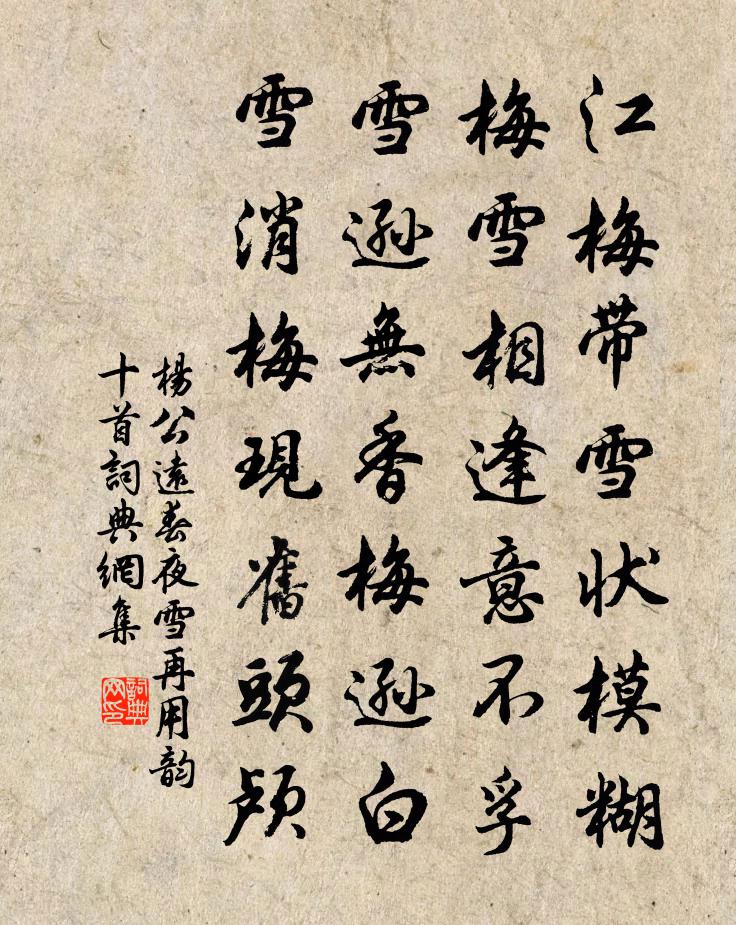 江梅带雪状模糊
梅雪相逢意不孚
雪逊無香梅逊白
雪消梅現舊頭颅
楊公远春夜雪再用韵
十首詞典網集
詞典网印